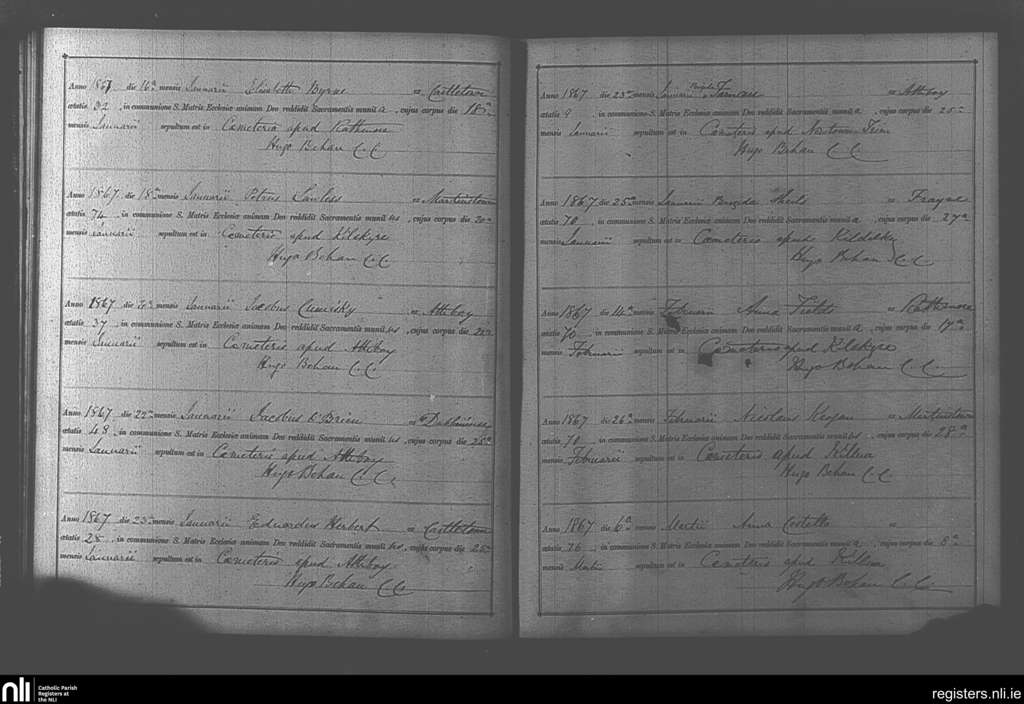 Anno 1867 die 16a mensis Januarii Elisabeth Byrne ex Castletown
ætatis 32, in communione S. Matris Ecclesiæ animam Deo reddidit Sacramentis munita, cujus corpus die 18a
mensis Januarii sepultum est in Cœmeterio apud Rathmore
Hugo Behan C.C.
Anno 1867 die 18a mensis Januarii Petrus Lawless ex Martinstown
ætatis 74, in communione S. Matris Ecclesiæ animam Deo reddidit Sacramentis munitus, cujus corpus die 20a
mensis Januarii sepultum est in Cœmeterio apud Kilskyre
Hugo Behan C.C.
Anno 1867 die mensis Januarii Jacobus ex Athboy
ætatis 37, in communione S. Matris Ecclesiæ animam Deo reddidit Sacramentis munitus, cujus corpus die
mensis Januarii sepultum est in Cœmeterio apud Athboy
Hugo Behan C.C.
Anno 1867 die 22a mensis Januarii Jacobus O'Brien ex
ætatis 48, in communione S. Matris Ecclesiæ animam Deo reddidit Sacramentis munitus, cujus corpus die 25a
mensis Januarii sepultum est in Cœmeterio apud Athboy
Hugo Behan C.C.
Anno 1867 die 23a mensis Januarii Eduardus Herbert ex Castletown
ætatis 28, in communione S. Matris Ecclesiæ animam Deo reddidit Sacramentis munitus, cujus corpus die 25a
mensis Januarii sepultum est in Cœmeterio apud Athboy
Hugo Behan C.C.
Anno 1867 die 23a mensis Januarii Brigida ex Athboy
ætatis 9, in communione S. Matris Ecclesiæ animam Deo reddidit Sacramentis munita, cujus corpus die 25a
mensis Januarii sepultum est in Cœmeterio apud Newtown Trim
Hugo Behan C.C.
Anno 1867 die 25a mensis Januarii Brigida Sheils ex Frayne
ætatis 70, in communione S. Matris Ecclesiæ animam Deo reddidit Sacramentis munita, cujus corpus die 27a
mensis Januarii sepultum est in Cœmeterio apud Kildalkey
Hugo Behan C.C.
Anno 1867 die 14a mensis Februarii Anna Fields ex Rathmore
ætatis 70, in communione S. Matris Ecclesiæ animam Deo reddidit Sacramentis munita, cujus corpus die 17a
mensis Februarii sepultum est in Cœmeterio apud Kilskyre
Hugo Behan C.C.
Anno 1867 die 26a mensis Februarii Nicolaus Keogan ex Martinstown
ætatis 70, in communione S. Matris Ecclesiæ animam Deo reddidit Sacramentis munitus, cujus corpus die 28a
mensis Februarii sepultum est in Cœmeterio apud Killua
Hugo Behan C.C.
Anno 1867 die 6a mensis Martii Anna Costello ex
ætatis 76, in communione S. Matris Ecclesiæ animam Deo reddidit Sacramentis munita, cujus corpus die 8a
mensis Martii sepultum est in Cœmeterio apud Killua
Hugo Behan C.C.
nli Catholic Parish
Registers at
the NLI
registers.nli.ie